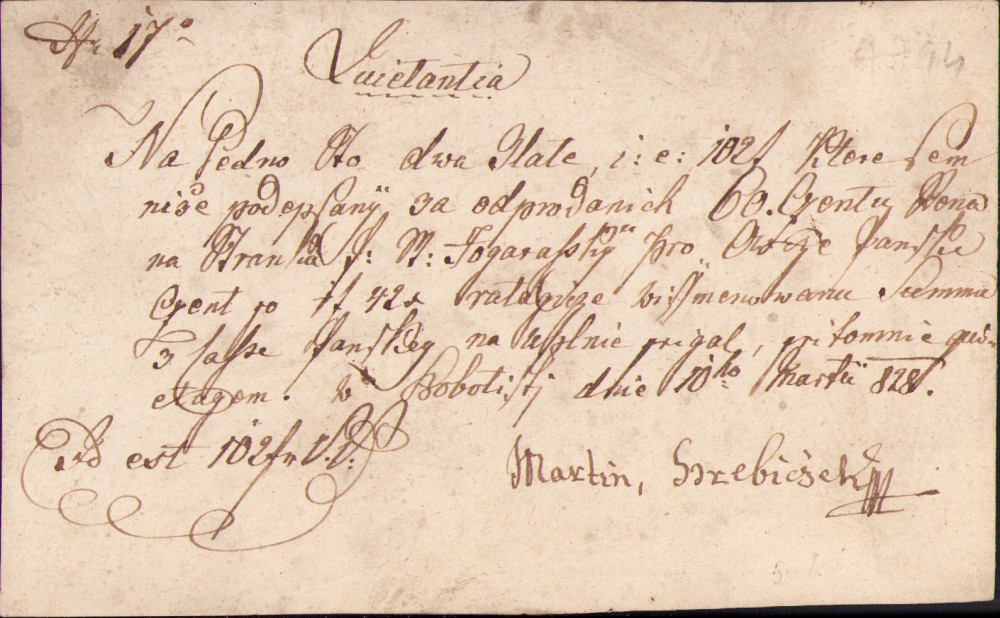 Nr 17°
A 794
Quietantia
Na Jedno Sto dwa Zlate, i: e: 102f Ktere sem
nize podepsanÿ za odprodanich 60. Czentu Sena
na Stranku f: St: Fogarassky pro Owcze Panske
Czent po 1f 42x ratagicze wissmenowanu Summu
z Casse Panskeg na uplnie prigal, pritomnie qwi-
etugem. W Sobotisti dnie 10ho Martii 828.
Id est 102f V.V.
Martin, Hrebiczek